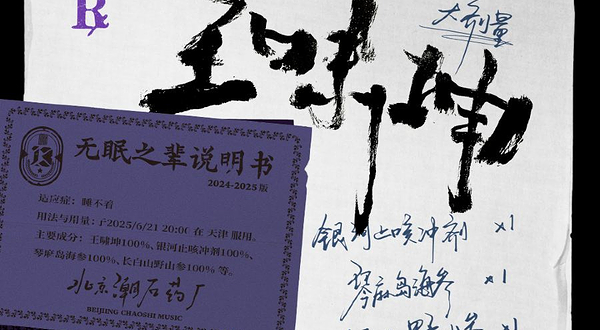 R
大剂量
王啸坤
无眠之辈说明书
2024-2025版
适应症：睡不着
用法与用量：于2025/6/21 20:00 在 天津 服用。
主要成分：王啸坤100%、银河止咳冲剂100%、
琴麻岛海参100%、长白山野山参100% 等。
北京潮石药厂
BEIJING CHAOSHI MUSIC
银河止咳冲剂 x1
琴麻岛海参 x1